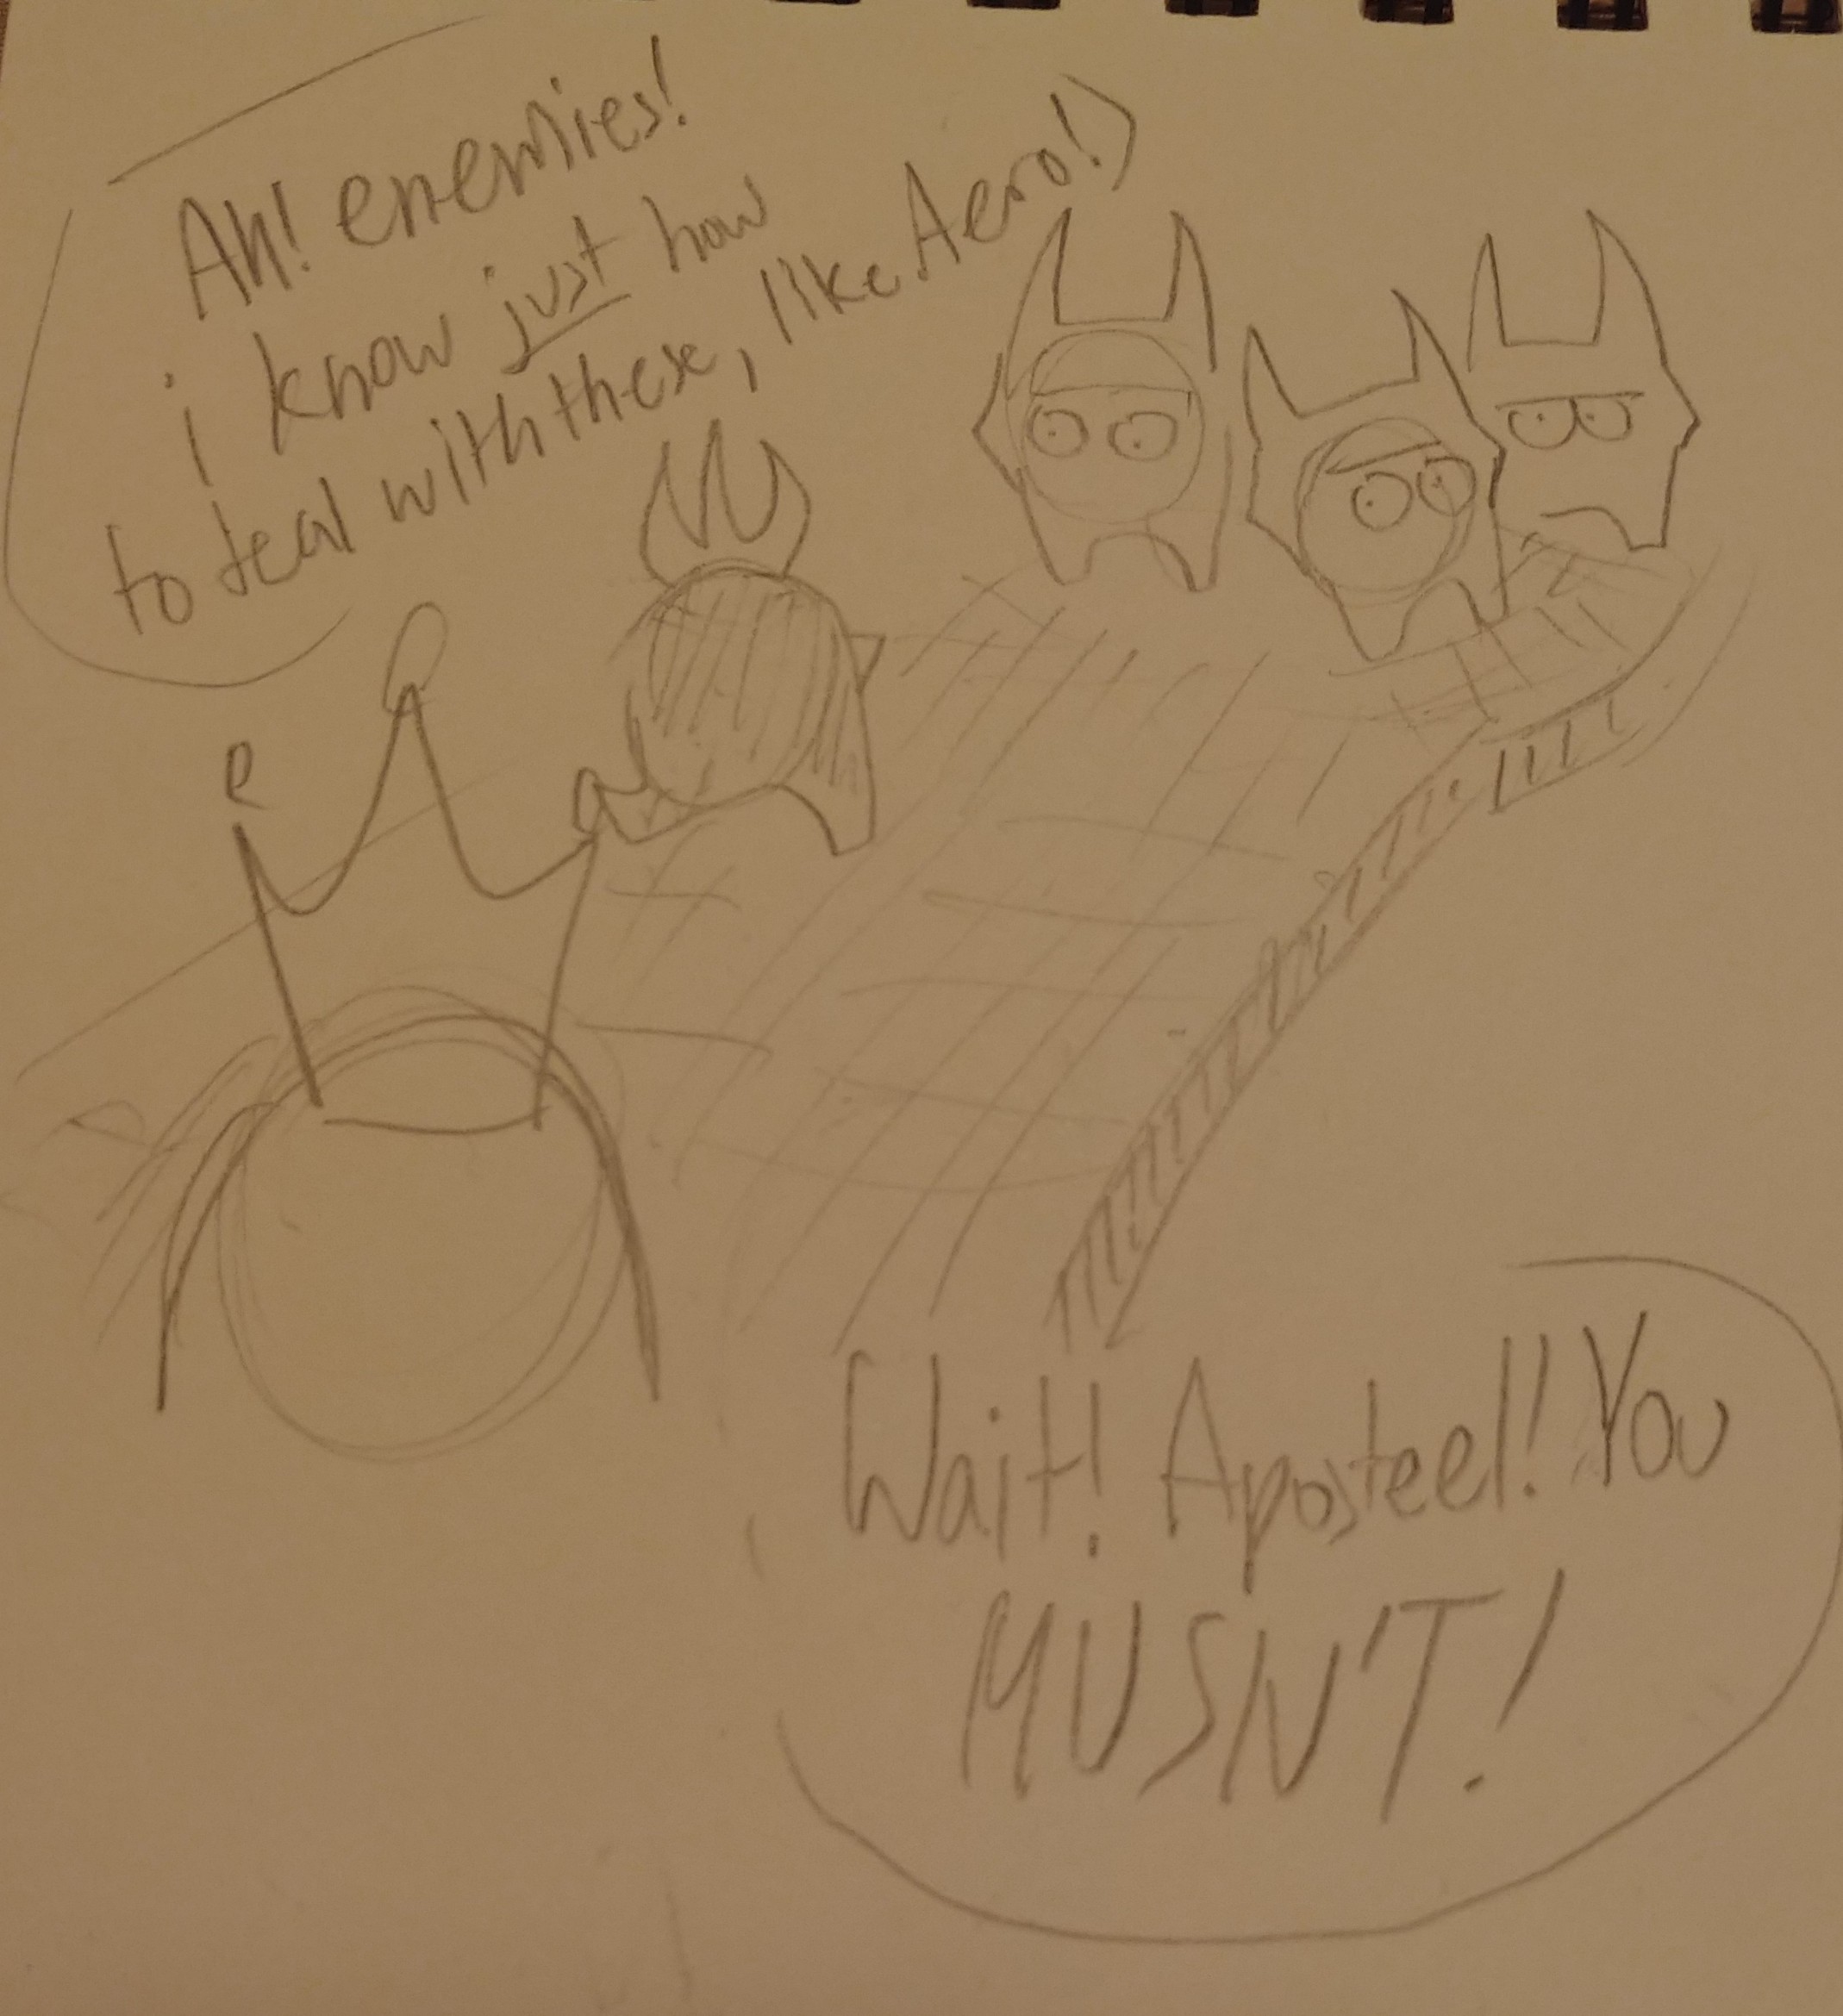 Ah! enemies!
i know just how
to teal with these, like Aero!)
Wait! Aposteel! You
MUSN'T!